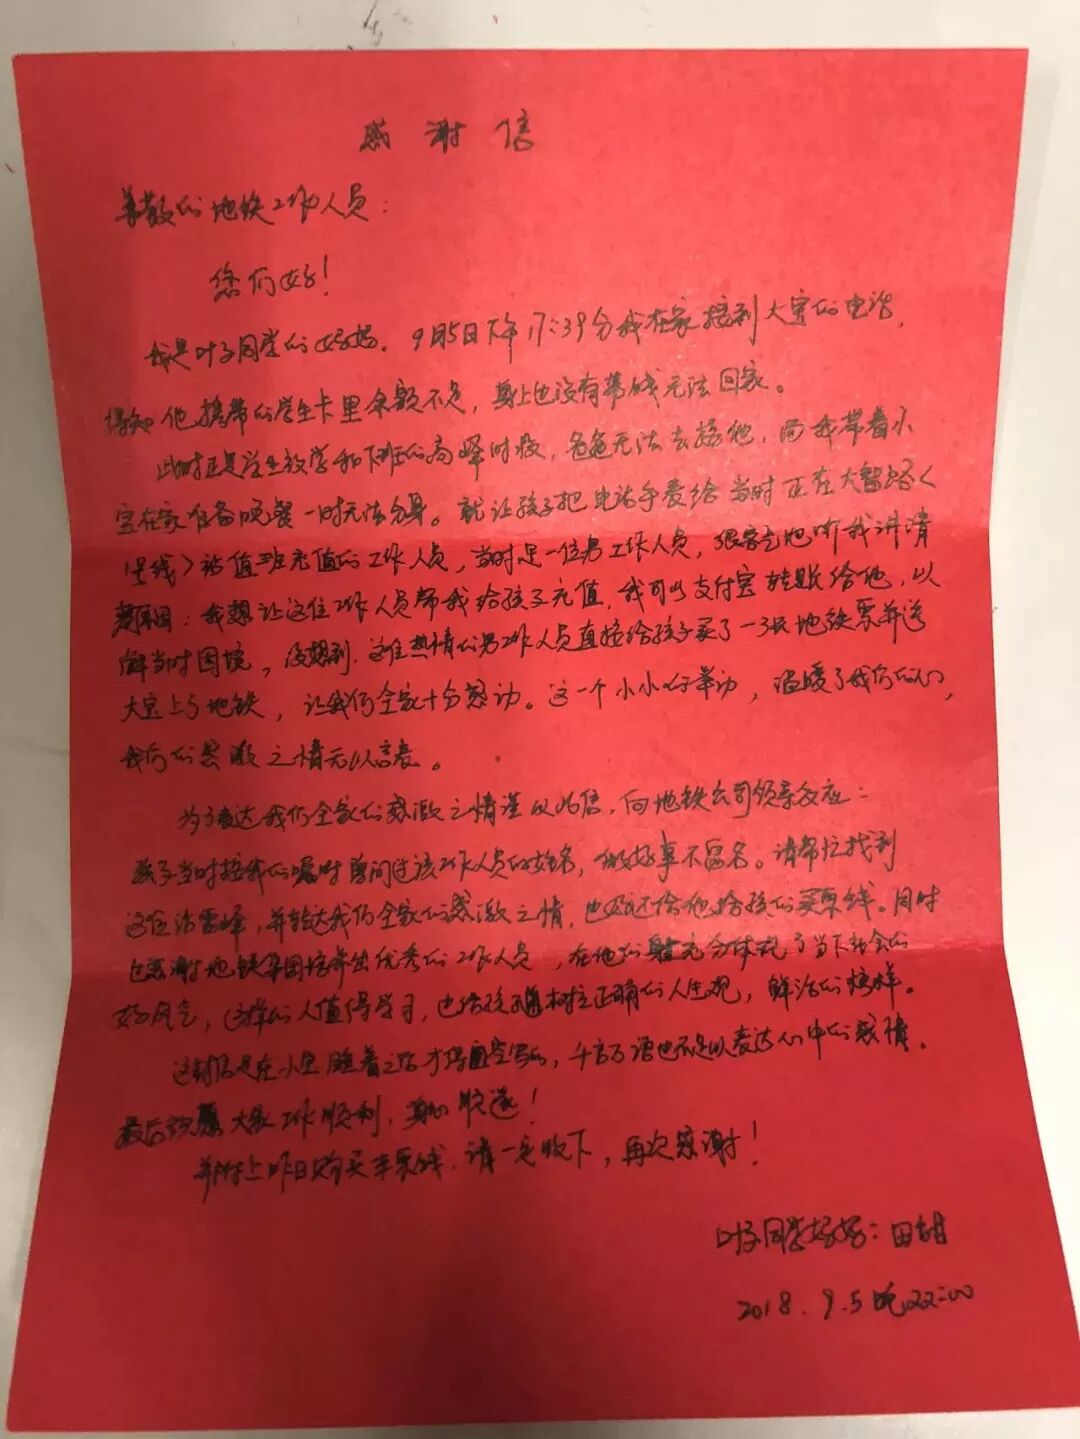 感谢信
尊敬的地铁工作人员：
您们好！
我是叶子同学的妈妈。9月5日下午17:39分我在家接到大宝的电话，
得知他携带的学生卡里余额不足，身上也没有带钱无法回家。
此时正是学生放学和下班的高峰时段，爸爸无法去接他，而我带着小
宝在家准备晚餐一时无法分身。就让孩子把电话手表给当时正在大智路〈
1号线〉站值班充值的工作人员，当时是一位男工作人员，很客气地听我讲清
原因：我想让这位工作人员帮我给孩子充值，我可以支付宝转账给他，以
解当时困境。没想到，这位热情的男工作人员直接给孩子买了一张地铁票并送
大宝上了地铁，让我们全家十分感动。这一个小小的举动，温暖了我们的心，
我们的感激之情无以言表。
为了表达我们全家的感激之情谨以此信，向地铁公司领导反应：
孩子当时按我的嘱咐曾问过该工作人员的姓名，做好事不留名。请帮忙找到
这位活雷锋，并转达我们全家的感激之情，也好还给他给孩子的买票钱。同时
也感谢地铁集团培养出优秀的工作人员，在他们身上充分体现了当下社会的
好风气，这样的人值得学习，也给孩子树立正确的人生观，鲜活的榜样。
这封信是在小宝睡着之后才得空写的，千言万语也不足以表达心中的感情。
最后祝愿大家工作顺利，身心愉逸！
并附上昨日购买车票钱，请一定收下，再次感谢！
叶子同学妈妈：田甜
2018.9.5晚22:00